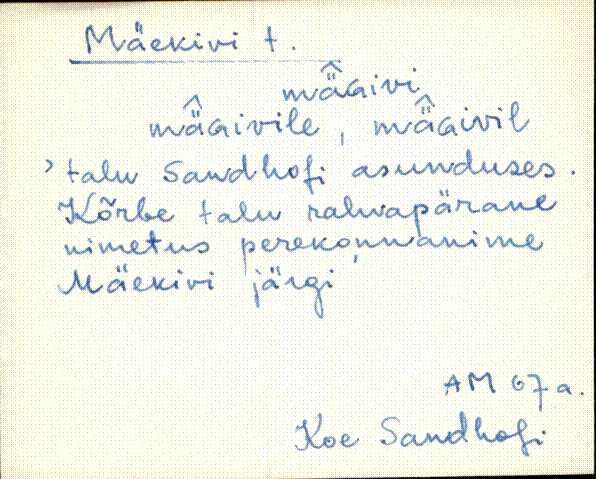 Mäekivi t.
mä̂ɢivi
mä̂ɢivile, mä̂ɢivil
› talu Sandhofi asunduses.
Kõrbe talu rahvapärane
nimetus perekonnanime
Mäekivi järgi
AM 67 a.
Koe Sandhofi